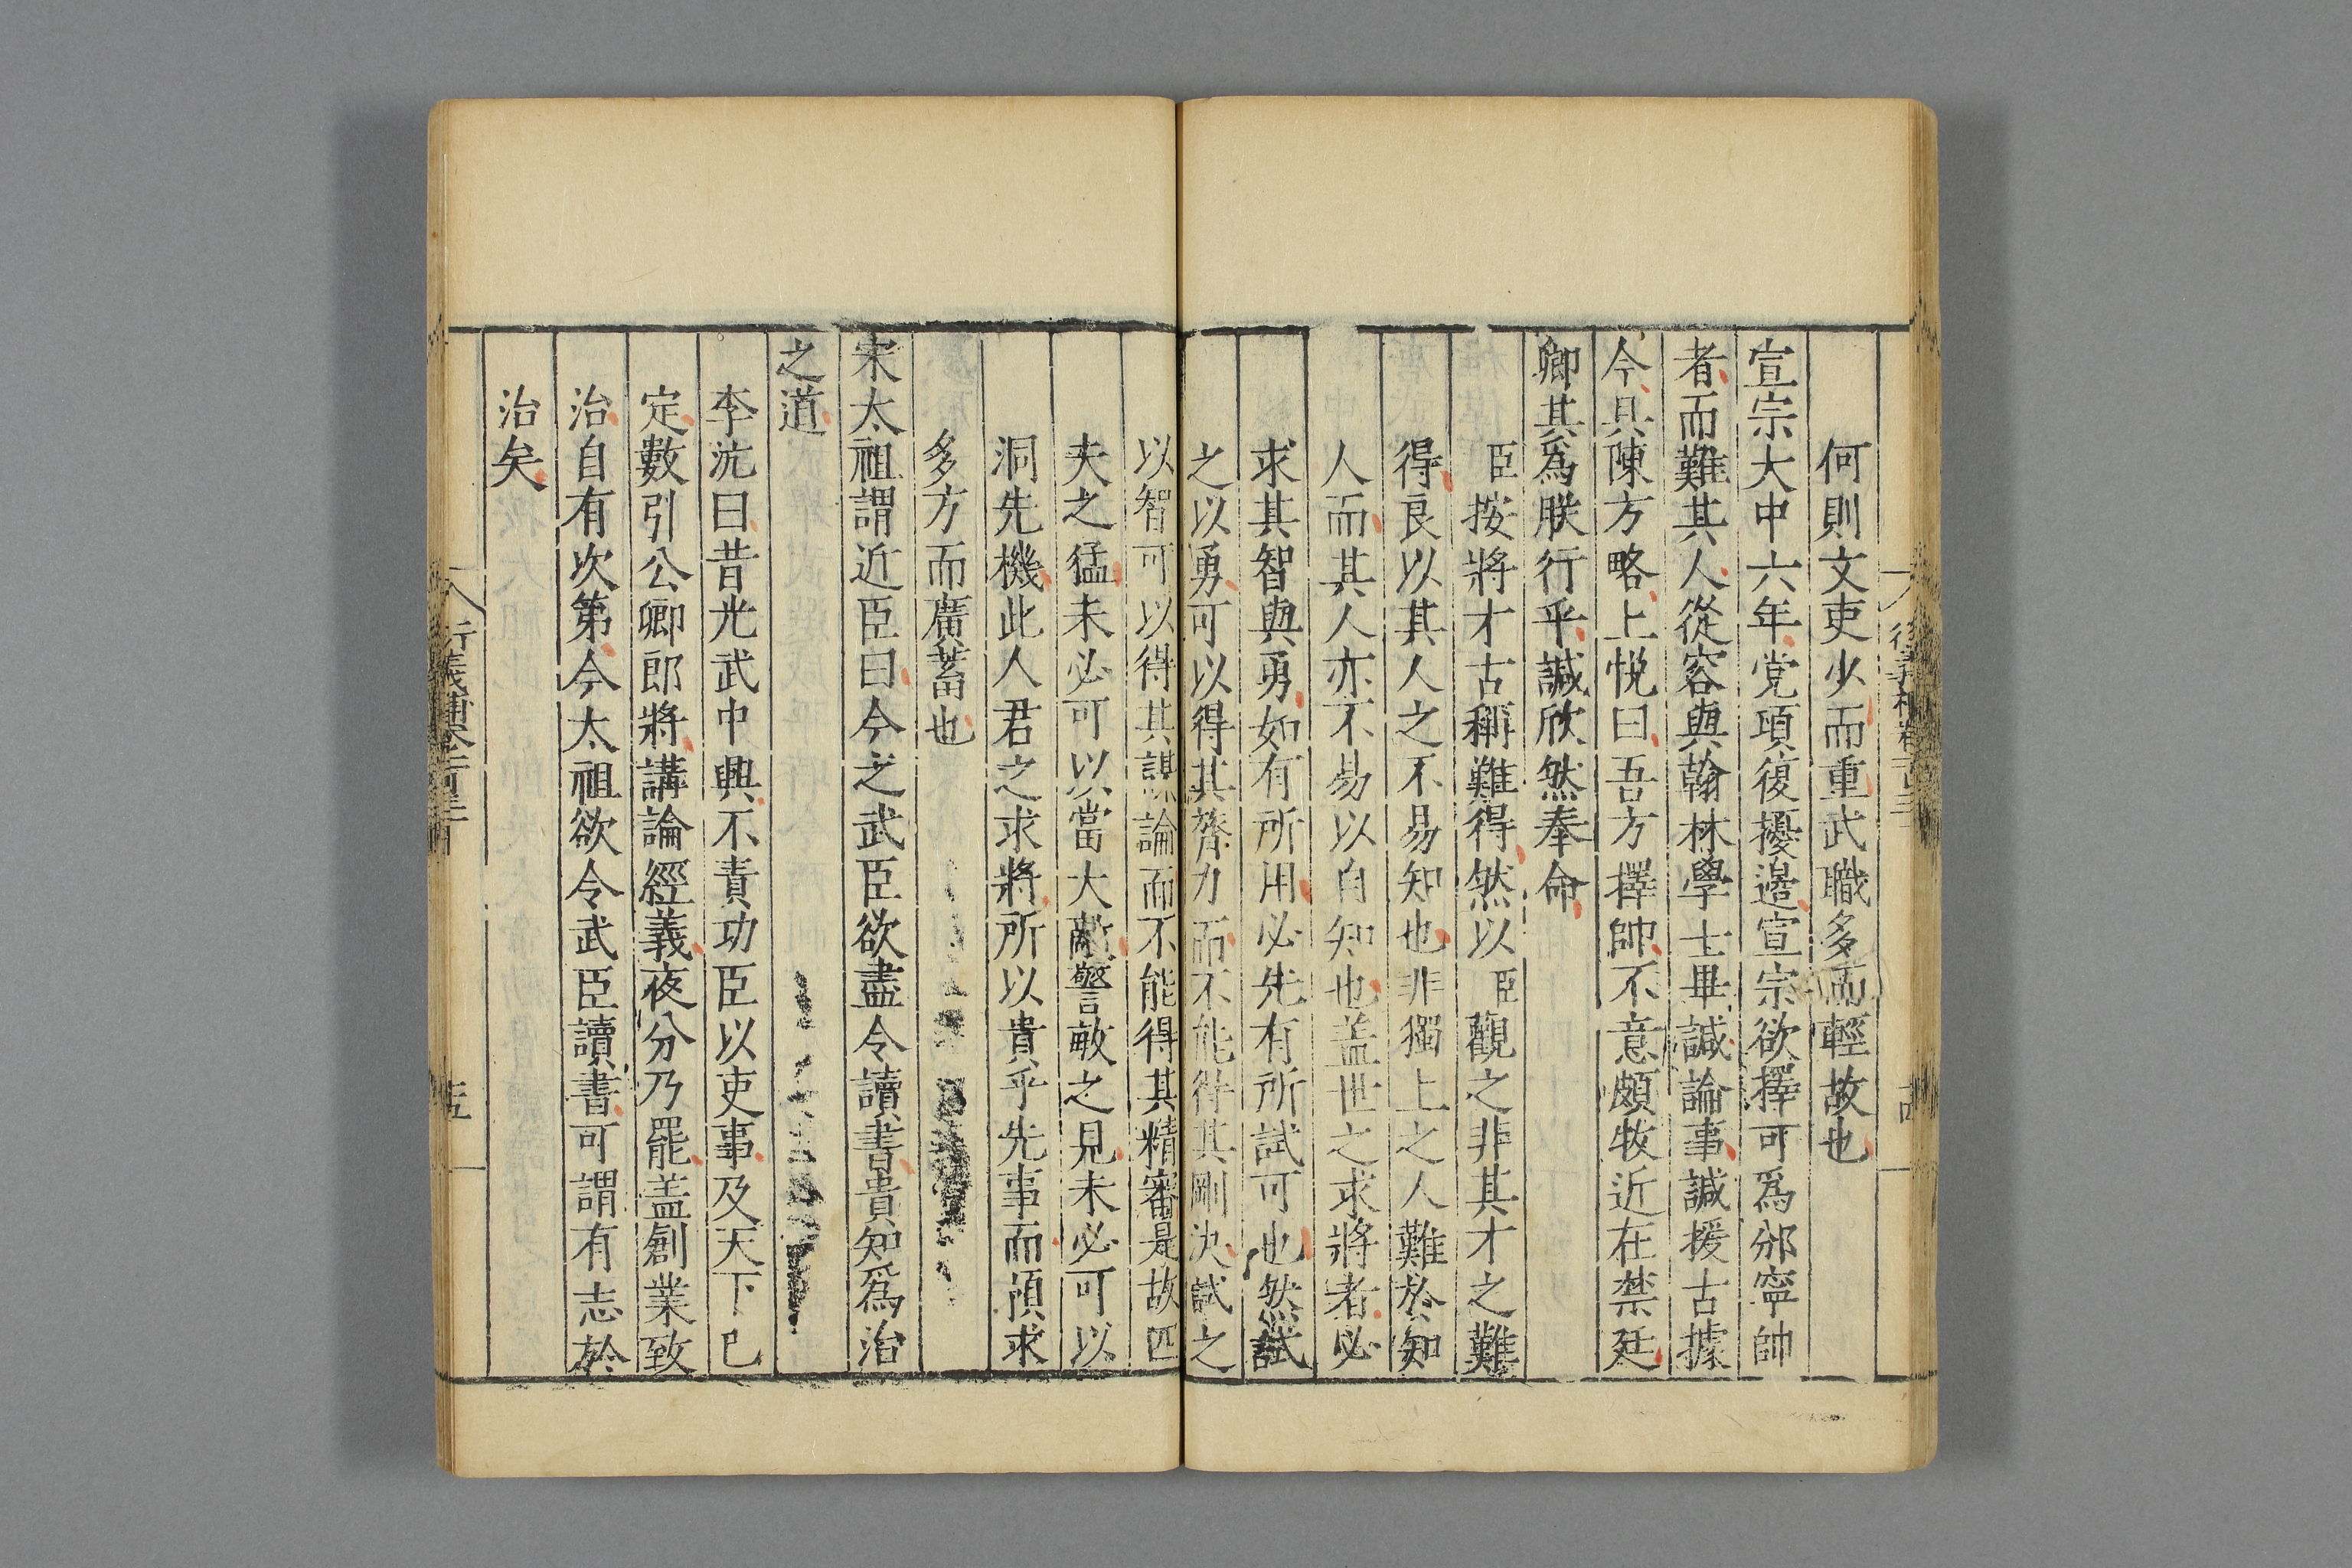 何則文吏少而重武職多而輕故也
宣宗大中六年党項復擾邊宣宗欲擇可爲邠寧帥
者而難其人從容與翰林學士畢諴論事諴援古據
今具陳方略上悅曰吾方擇帥不意頗牧近在禁廷
卿其爲朕行乎諴欣然奉命
臣按將才古稱難得然以臣觀之非其才之難
得良以其人之不易知也非獨上之人難於知
人而其人亦不易以自知也盖世之求將者必
求其智與勇如有所用必先有所試可也然試
之以勇可以得其膂力而不能得其剛決試之
以智可以得其謀論而不能得其精審是故匹
夫之猛未必可以當大敵警敏之見未必可以
洞先機此人君之求將所以貴乎先事而預求
多方而廣蓄也
宋太祖謂近臣曰今之武臣欲盡令讀書貴知爲治
之道
李沆曰昔光武中興不責功臣以吏事及天下已
定數引公卿郎將講論經義夜分乃罷盖創業致
治自有次第今太祖欲令武臣讀書可謂有志於
治矣